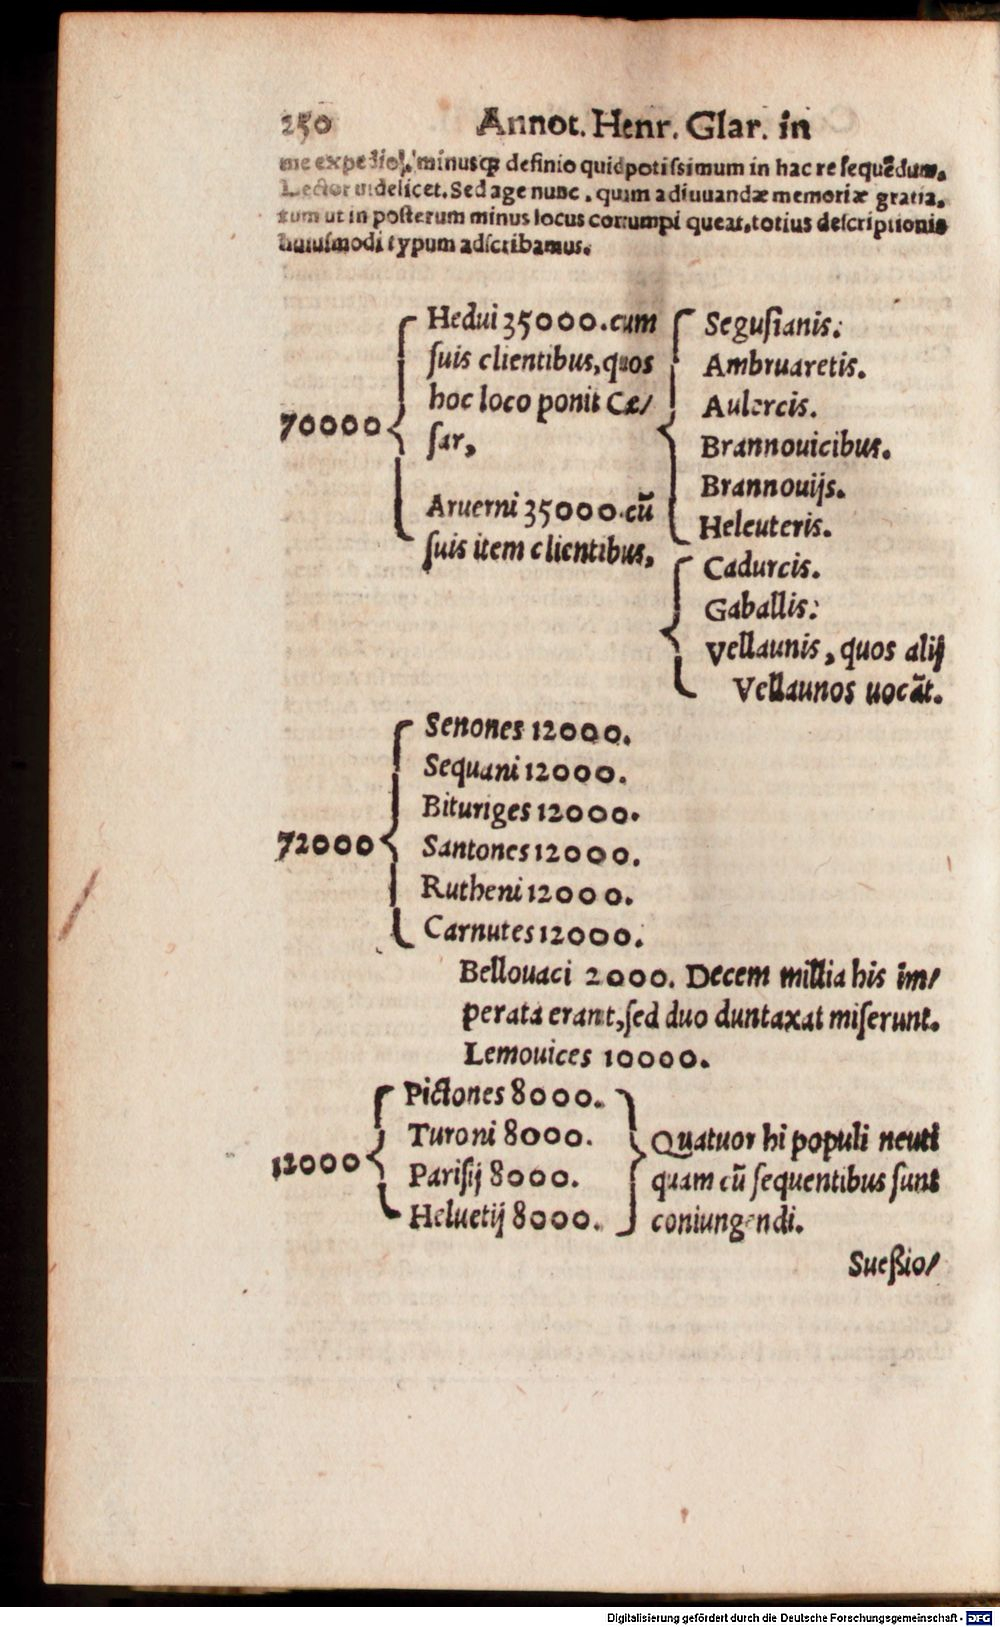 250 Annot. Henr. Glar. in
me expedio, minusqꝫ definio quid potissimum in hac re sequēdum,
Lector uidelicet. Sed age nunc, quum adiuuandæ memoriæ gratia,
tum ut in posterum minus locus corrumpi queat, totius descriptionis
huiusmodi typum adscribamus.
70000
Hedui 35000. cum
suis clientibus, quos
hoc loco ponit Cæ/
sar,
Segusianis:
Ambruaretis.
Aulercis.
Brannouicibus.
Brannouijs.
Heleuteris.
Aruerni 35000. cū
suis item clientibus,
Cadurcis.
Gaballis:
Vellaunis, quos alij
Vellaunos uocāt.
72000
Senones 12000.
Sequani 12000.
Bituriges 12000.
Santones 12000.
Rutheni 12000.
Carnutes 12000.
Bellouaci 2000. Decem millia his im/
perata erant, sed duo duntaxat miserunt.
Lemouices 10000.
12000
Pictones 8000.
Turoni 8000.
Parisij 8000.
Heluetij 8000.
Quatuor hi populi neuti
quam cū sequentibus sunt
coniungendi.
Sueßio/
Digitalisierung gefördert durch die Deutsche Forschungsgemeinschaft - DFG